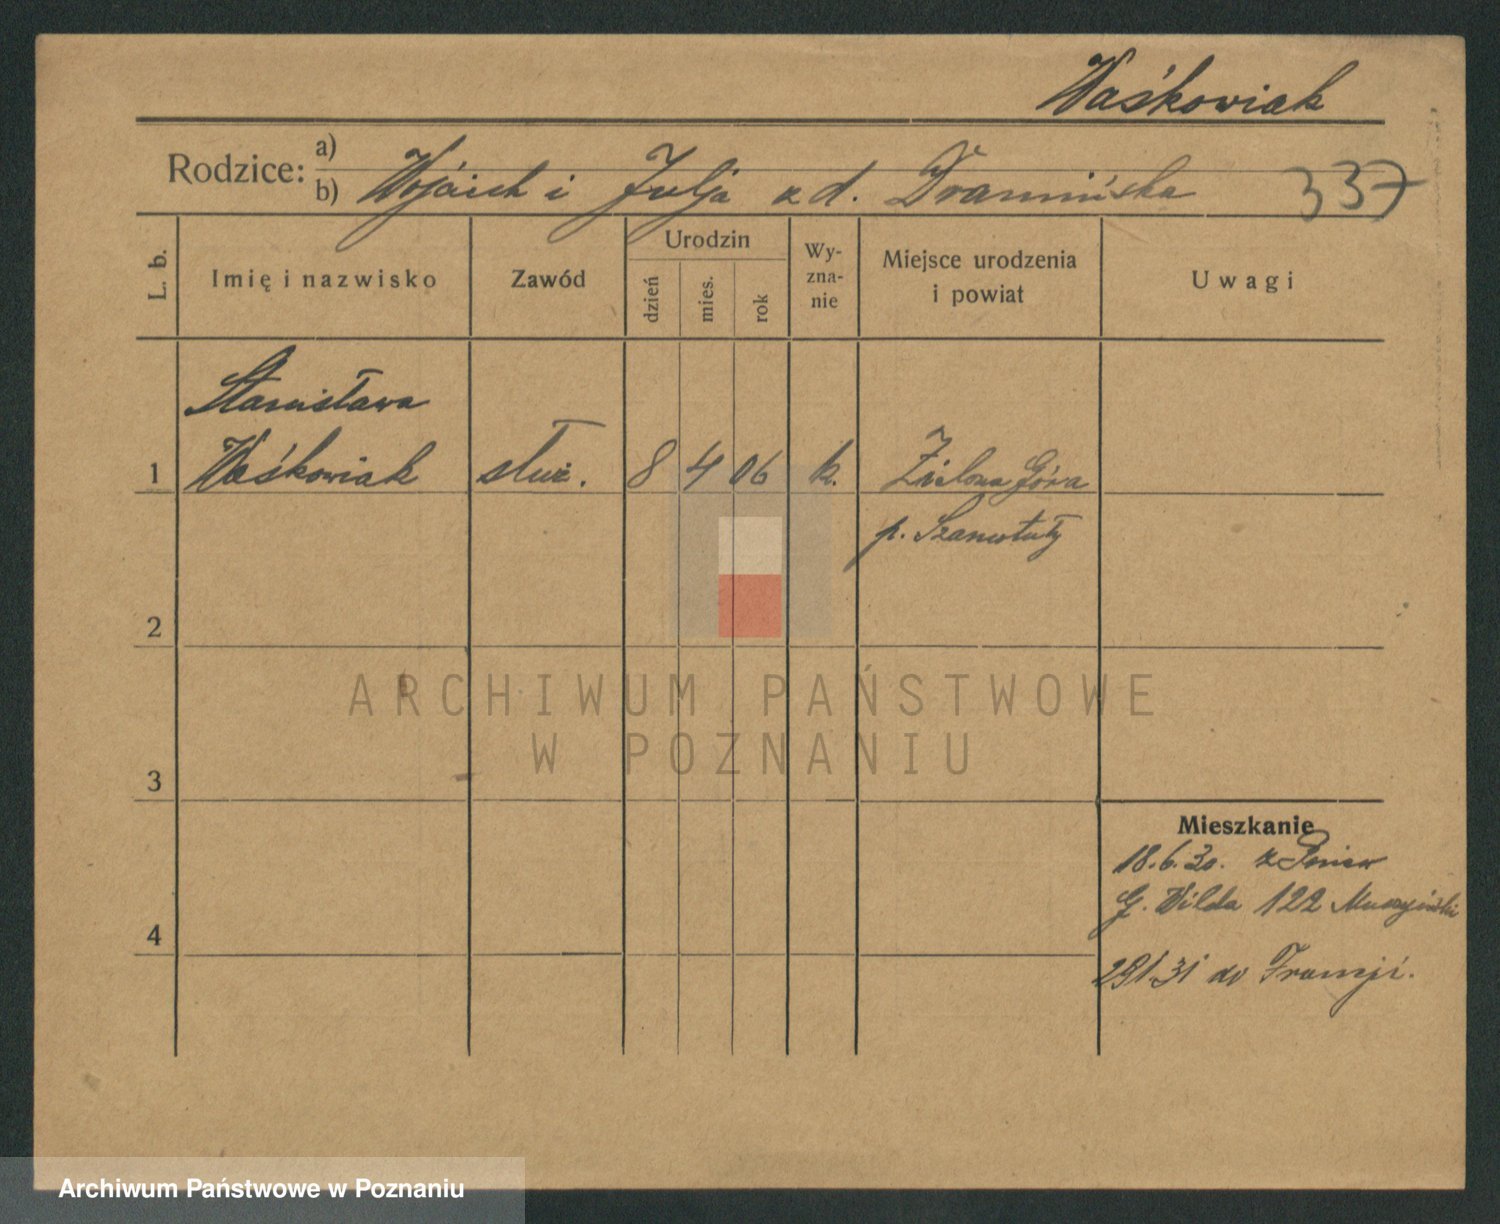 Waśkowiak
Rodzice: a)
b) Wojciech i Julja z d. Dramińska 337
L. b.
Imię i nazwisko
Zawód
Urodzin
dzień
mies.
rok
Wy-
zna-
nie
Miejsce urodzenia
i powiat
Uwagi
Stanisława
1 Waśkowiak służ. 8 4 06 k. Zielona Góra
p. Szamotuły
2
ARCHIWUM PAŃSTWOWE
W POZNANIU
3
Mieszkanie
18.6.30. z Pniew
G. Wilda 122
4
do Francji.
Archiwum Państwowe w Poznaniu